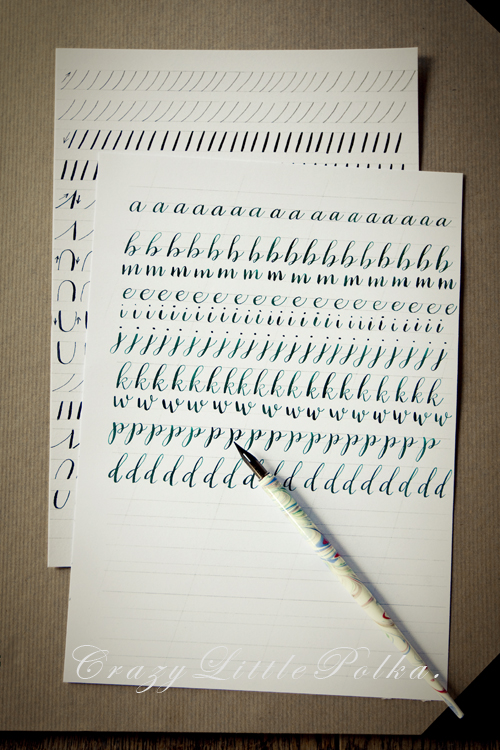 a a a a a a a a a a a a a a a a a
b b b b b b b b b b b b b b b b b
m m m m m m m m m m m m m m
e e e e e e e e e e e e e e e e e
i i i i i i i i i i i i i i i i i i i i i i
j j j j j j j j j j j j j j j j j j j
k k k k k k k k k k k k k k k k k k
w w w w w w w w w w w w w w
p p p p p p p p p p p p p p p p p p
d d d d d d d d d d d d d d d d d d
Crazy Little Polka.